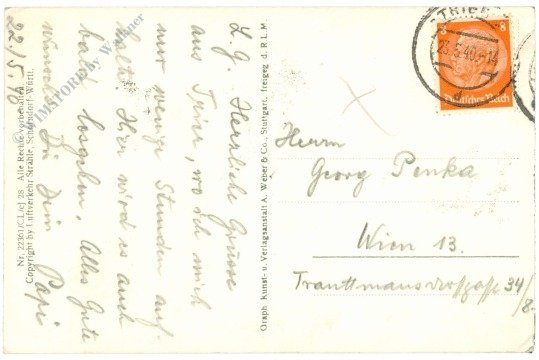 22./5.40
L. G. Herzliche Grüsse
aus Trier, wo ich mich
nur wenige Stunden auf-
halte. Hier wird es auch
bald losgehen. Alles Gute
wünscht Dir Dein Papi
Nr. 22361/CL/ej 28 Alle Rechte vorbehalten
Copyright by Luftverkehr Strähle, Schorndorf-Württ.
Graph. Kunst- u. Verlagsanstalt A. Weber & Co., Stuttgart, freigeg. d. R.L.M.
TRIER
23.5.40.-14
8
8
Deutsches Reich
Herrn
Georg Penka
Wien 13.
Trauttmansdorffgasse 34/8.